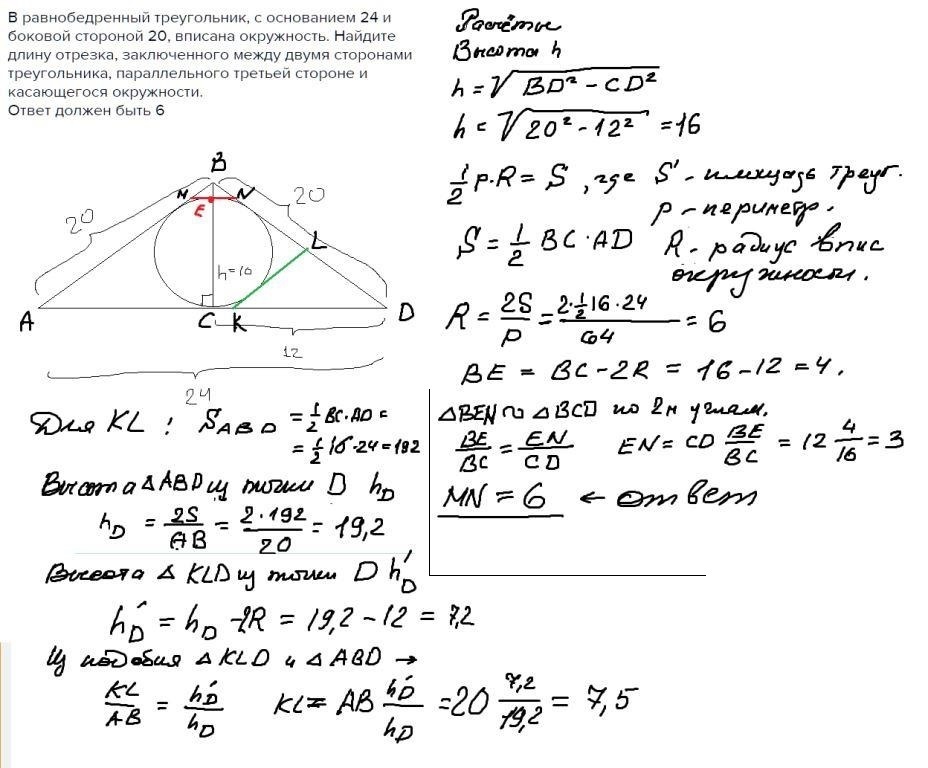 В равнобедренный треугольник, с основанием 24 и
боковой стороной 20, вписана окружность. Найдите
длину отрезка, заключенного между двумя сторонами
треугольника, параллельного третьей стороне и
касающегося окружности.
Ответ должен быть 6
B
M N
E
20
20
L
h=10
A
C K
D
12
24
Расчёты
Высота h
h = √(BD² - CD²)
h = √(20² - 12²) = 16
1/2 p·R = S, где S - площадь треуг.
p - периметр.
S = 1/2 BC · AD R - радиус впис
окружности.
R = 2S/P = 2·1/2 16·24/64 = 6
BE = BC - 2R = 16 - 12 = 4.
△BEN ~ △BCD по 2м углам.
BE/BC = EN/CD EN = CD BE/BC = 12 4/16 = 3
MN = 6 ← ответ
Для KL : S ABD = 1/2 BC·AD =
= 1/2 16·24 = 192
Высота △ABD из точки D hD
hD = 2S/AB = 2·192/20 = 19,2
Высота △ KLD из точки D h'D
h'D = hD - 2R = 19,2 - 12 = 7,2
Из подобия △KLD и △ABD →
KL/AB = h'D/hD KL = AB h'D/hD = 20 7,2/19,2 = 7,5